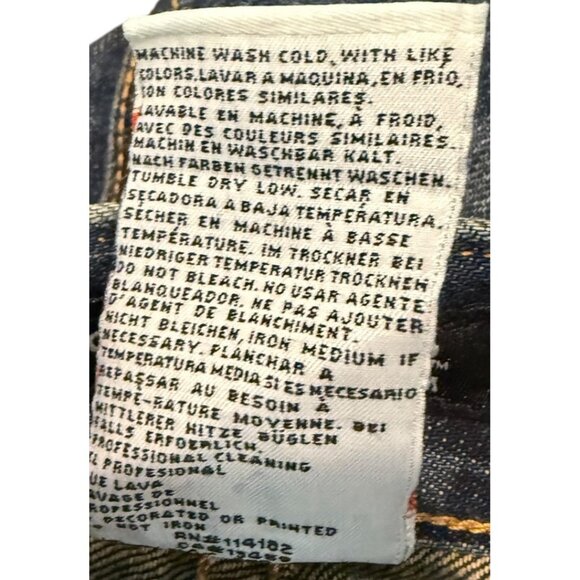 MACHINE WASH COLD, WITH LIKE
COLORS. LAVAR A MAQUINA, EN FRIO,
CON COLORES SIMILARES.
LAVABLE EN MACHINE, À FROID,
AVEC DES COULEURS SIMILAIRES.
MACHIN EN WASCHBAR KALT.
NACH FARBEN GETRENNT WASCHEN.
TUMBLE DRY LOW. SECAR EN
SECADORA A BAJA TEMPERATURA.
SÉCHER EN MACHINE À BASSE
TEMPÉRATURE. IM TROCKNER BEI
NIEDRIGER TEMPERATUR TROCKNEN
DO NOT BLEACH. NO USAR AGENTE
BLANQUEADOR. NE PAS AJOUTER
D'AGENT DE BLANCHIMENT.
NICHT BLEICHEN, IRON MEDIUM IF
NECESSARY. PLANCHAR A
TEMPERATURA MEDIA SI ES NECESARIO
REPASSAR AU BESOIN À
TEMPE-RATURE MOYENNE. BEI
MITTLERER HITZE BÜGLEN
FALLS ERFOERLICH.
PROFESSIONAL CLEANING
PROFESIONAL
QUE LAVA
LAVAGE DE
PROFESSIONNEL
DECORATED OR PRINTED
NOT IRON
RN#114182